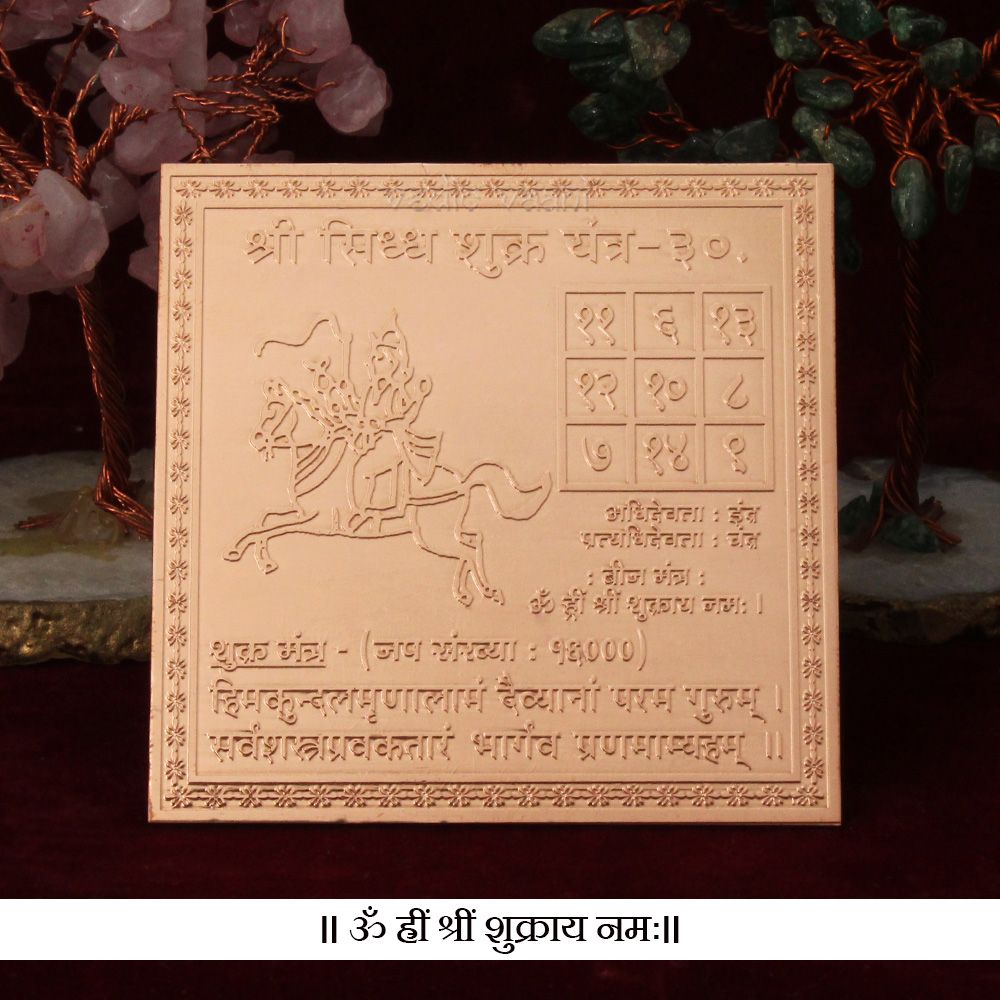 vedic vaani
श्री सिध्ध शुक्र यंत्र-३०.
११ ६ १३
१२ १० ८
७ १४ ९
अधिदेवता : इंद्र
प्रत्यधिदेवता : चंद्र
: बीज मंत्र :
ॐ ह्रीं श्रीं शुक्राय नमः ।
शुक्र मंत्र - (जप संख्या : १६०००)
हिमकुन्दलमृणालामं दैव्यानां परम गुरुम् ।
सर्वशस्त्रप्रवकतारं भार्गव प्रणमाम्यहम् ।।
॥ ॐ ह्रीं श्रीं शुक्राय नमः॥